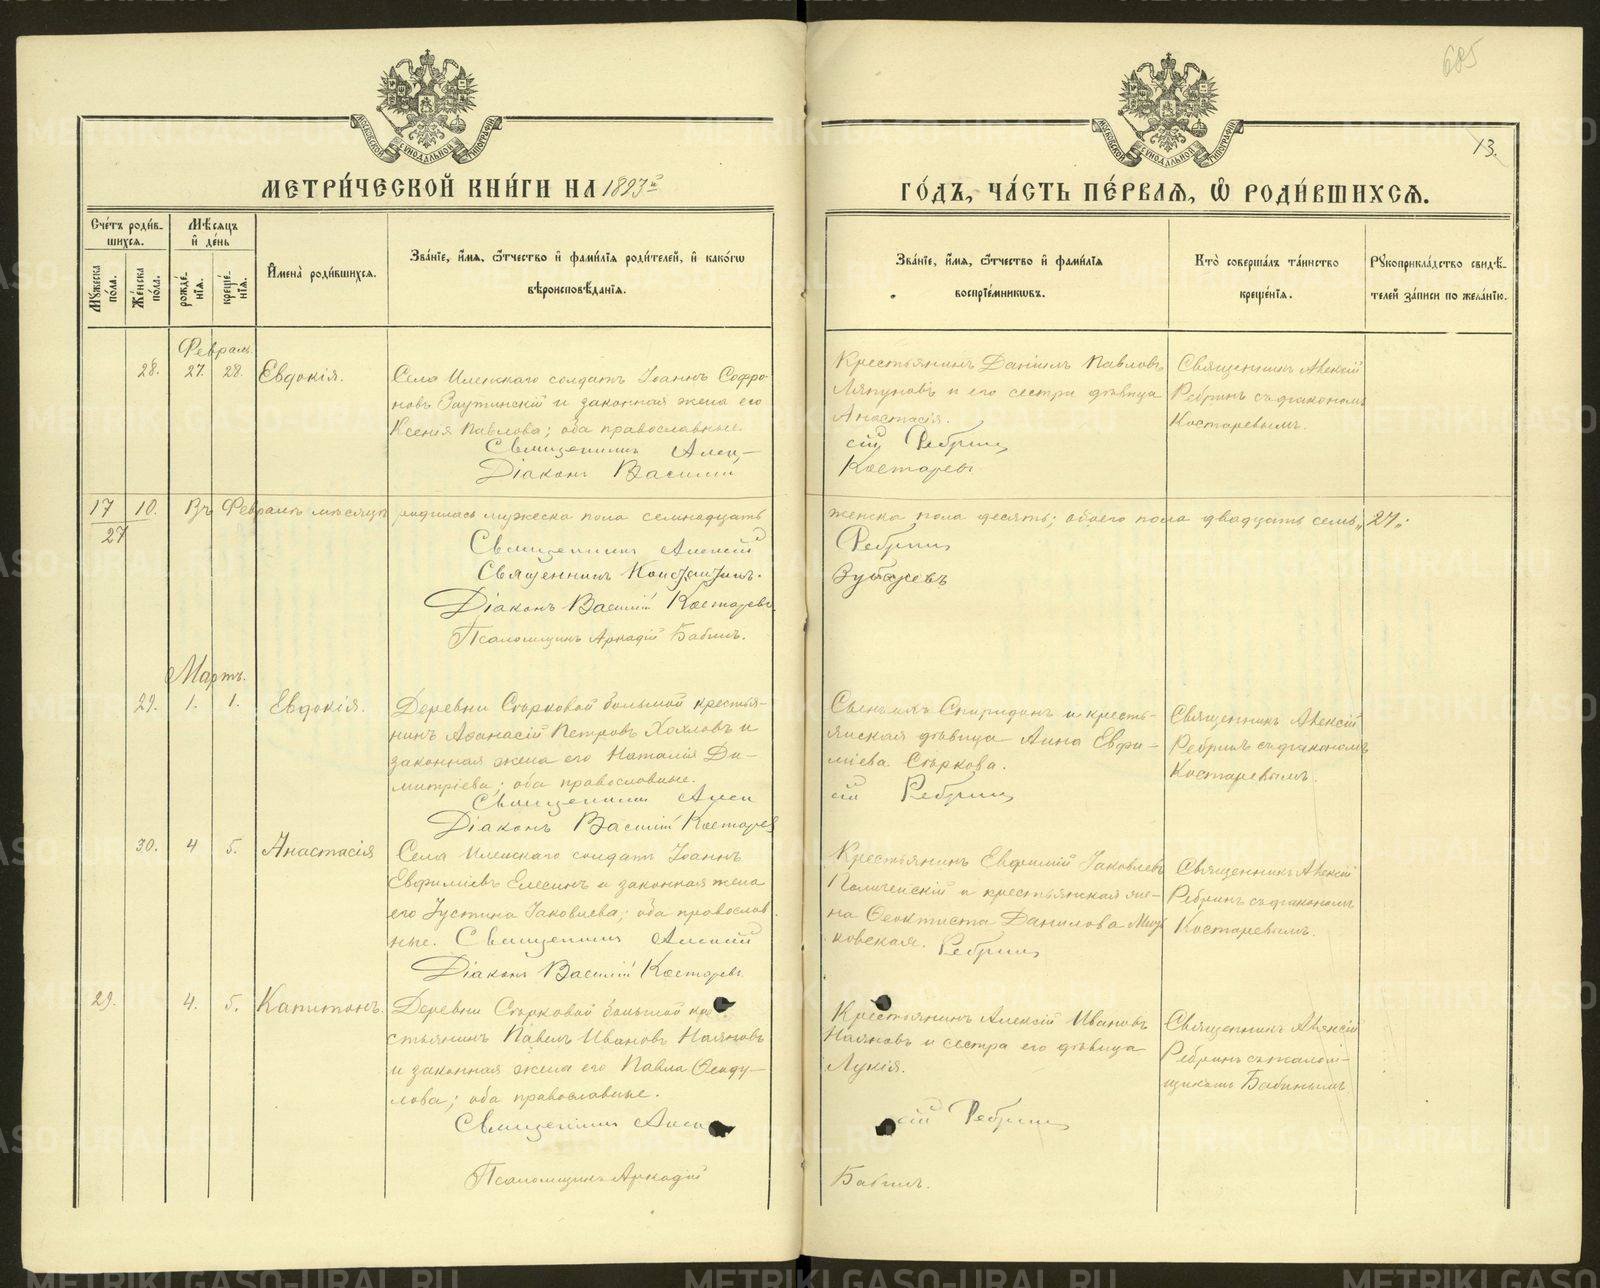 685
13.
МОСКОВСКОЙ СѴНОДАЛЬНОЙ ТИПОГРАФІИ
МОСКОВСКОЙ СѴНОДАЛЬНОЙ ТИПОГРАФІИ
МЕТРИ́ЧЕСКОЙ КНИ́ГИ НА 1893й
ГО́ДЪ, ЧА́СТЬ ПЕ́РВАЯ, Ѡ҆ РОДИ́ВШИХСЯ.
Сче́тъ роди́в-
шихся.
Мѣ́сяцъ
и҆ де́нь
Мꙋ́жеска
по́ла.
Же́нска
по́ла.
рожде́-
нїя.
креще́-
нїя.
И҆мена̀ роди́вшихся.
Зва́нїе, и҆́мя, ѻ҆́тчество и҆ фами́лїя роди́телей, и҆ како́гѡ
вѣроисповѣ́данїя.
Зва́нїе, и҆́мя, ѻ҆́тчество и҆ фами́лїя
воспрїе́мникѡвъ.
Кто̀ соверша́лъ та́инство
креще́нїя.
Рꙋкоприкла́дство свидѣ́-
телей за́писи по жела́нїю.
Февраль
28. 27. 28. Евдокія.
Села Иленскаго солдатъ Іоаннъ Софро-
новъ Заутинскій и законная жена его
Ксенія Павлова; оба православные.
Священникъ Алек-
Діаконъ Василій
Крестьянинъ Даніилъ Павловъ
Ляпуновъ и его сестра дѣвица
Анастасія.
сій Ребринъ
Костаревъ
Священникъ Алексій
Ребринъ съ діакономъ
Костаревымъ.
17 10. Въ Февралѣ мѣсяцѣ родилось мужеска пола семнадцать
27
женска пола десять; обоего пола двадцать семь, 27.
Священникъ Алексій
Священникъ Константинъ.
Діаконъ Василій Костаревъ
Псаломщикъ Аркадій Бабинъ.
Ребринъ
Мартъ.
29. 1. 1. Евдокія.
Деревни Сгорковой большой крестья-
нинъ Афанасій Петровъ Хохловъ и
законная жена его Наталія Ди-
митріева; оба православные.
Священникъ Алек
Діаконъ Василій Костарев
Спиридонъ и кресть-
янская дѣвица Анна Евфи-
міева
сій Ребринъ
Священникъ Алексій
Ребринъ съ діакономъ
Костаревымъ.
30. 4 5. Анастасія
Села Иленскаго солдатъ Іоаннъ
Евфиміевъ Елесинъ и законная жена
его Іустина Іаковлева; оба православ
ные. Священникъ Алексій
Діаконъ Василій Костаревъ
Крестьянинъ Евфимій Іаковлевъ
и крестьянская же-
на Феоктиста Данилова
Ребринъ
Священникъ Алексій
Ребринъ съ діакономъ
Костаревымъ.
29. 4. 5. Капитонъ.
Деревни большой кре
стьянинъ Павелъ Ивановъ Наяновъ
и законная жена его Павла Феоду-
лова; оба православные.
Священникъ Алек
Псаломщикъ Аркадій
Крестьянинъ Алексій Ивановъ
Наяновъ и сестра его дѣвица
Лукія.
сій Ребринъ
Бабинъ.
Священникъ Алексій
Ребринъ съ псалом-
щикомъ Бабинымъ
METRIKI.GASO-URAL.RU